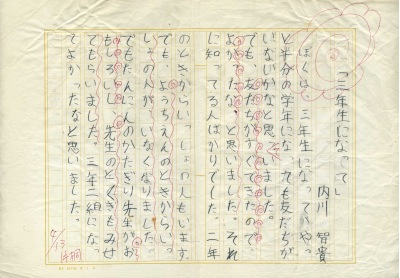 「三年生になって」
内川 智貴
ぼくは、三年生になって、やっ
と半分の学年になっても友だちが
いないかなと思いました。
でも、友だちがすぐできたので、
よかったな、と思いました。それ
に知ってる人ばかりでした。二年
のときからいっしょの人もいます。
でも、ようちえんのときからい
っしょの人が、いなくなりました。
でもたんにんのかたぎり先生がお
もしろいし、先生のとくぎもみせ
てもらいました。三年二組にな
てよかったなと思いました。
4/13